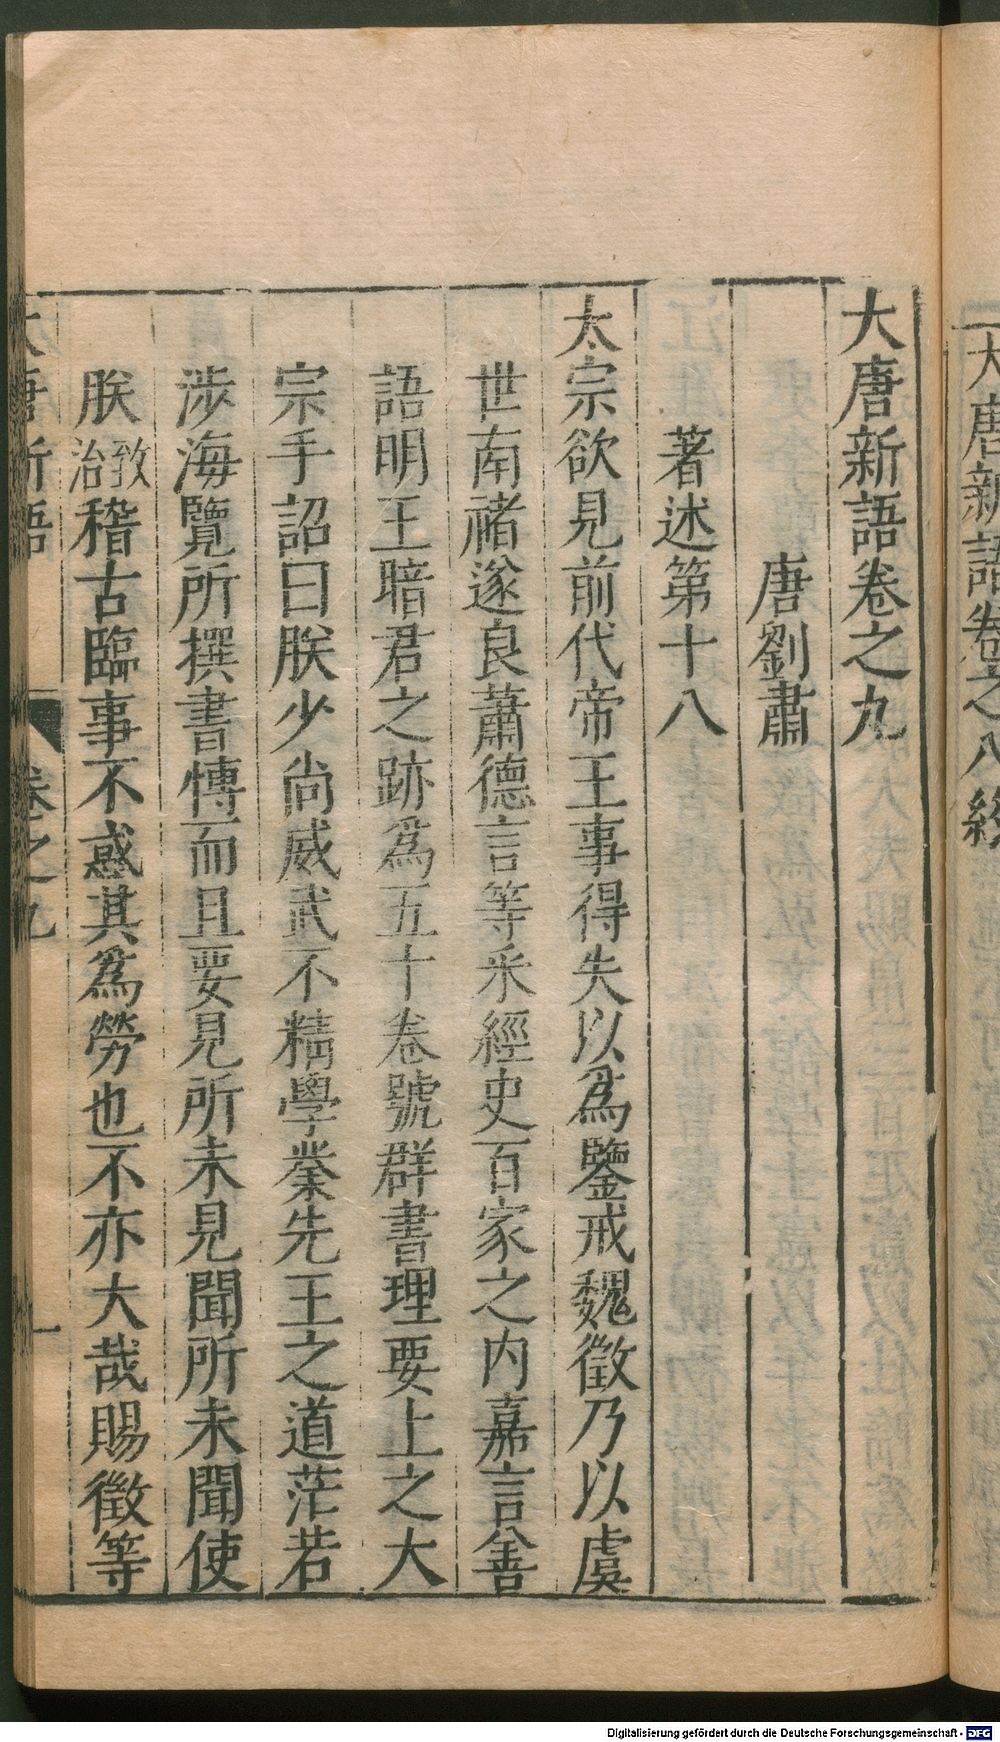 大唐新語卷之八終
大唐新語卷之九
唐劉肅
著述第十八
太宗欲見前代帝王事得失以爲鑒戒魏徵乃以虞
世南褚遂良蕭德言等采經史百家之内嘉言善
語明王暗君之跡爲五十卷號群書理要上之大
宗手詔曰朕少尚威武不精學業先王之道茫若
涉海覽所撰書愽而且要見所未見聞所未聞使
朕致治稽古臨事不惑其爲勞也不亦大哉賜徵等
大唐新語 卷之九 一
Digitalisierung gefördert durch die Deutsche Forschungsgemeinschaft - DFG